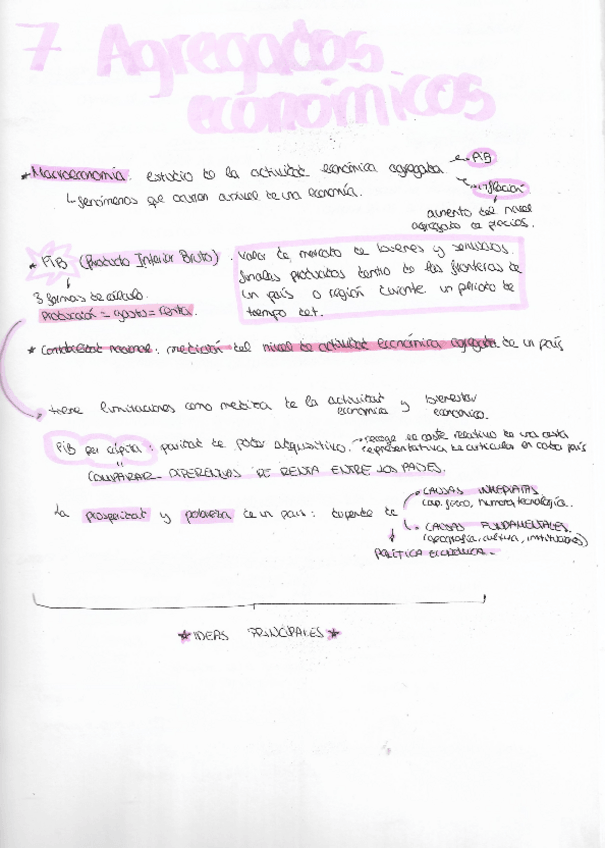 7 Agregados
económicos
* Macroeconomía: estudio de la actividad económica agregada → PiB
↳ fenómenos que ocurren a nivel de una economía. → inflación
aumento del nivel
agregado de precios.
* PiB (Producto Interior Bruto). Valor de mercado de bienes y servicios
3 formas de cálculo. finales producidos dentro de las fronteras de
Producción = gasto = renta. un país o región durante un periodo de
tiempo det.
* Contabilidad nacional: medición del nivel de actividad económica agregada de un país
→ tiene limitaciones como medida de la actividad económica y bienestar económico.
PiB per cápita: paridad de poder adquisitivo. → recoge el coste relativo de una cesta
representativa de artículos en cada país
COMPARAR DIFERENCIAS DE RENTA ENTRE LOS PAÍSES.
La prosperidad y pobreza de un país: depende de → CAUSAS INMEDIATAS
(cap. físico, humano, tecnológica..
→ CAUSAS FUNDAMENTALES.
(geografía, cultura, instituciones)
POLÍTICA ECONÓMICA.
* IDEAS PRINCIPALES *